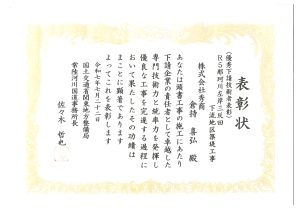 表彰状
(優秀下請技術者表彰)
R5那珂川左岸三反田
下流地区築堤工事
株式会社秀商
倉持 喜弘 殿
あなたは頭書工事の施工にあたり
下請企業の責任者として卓越した
専門技術力と統率力を発揮し
優良な工事を完遂する過程に
おいて果たしたその功績は
まことに顕著であります
よってこれを表彰します
令和七年七月二十二日
国土交通省関東地方整備局
常陸河川国道事務所長
佐々木 哲也